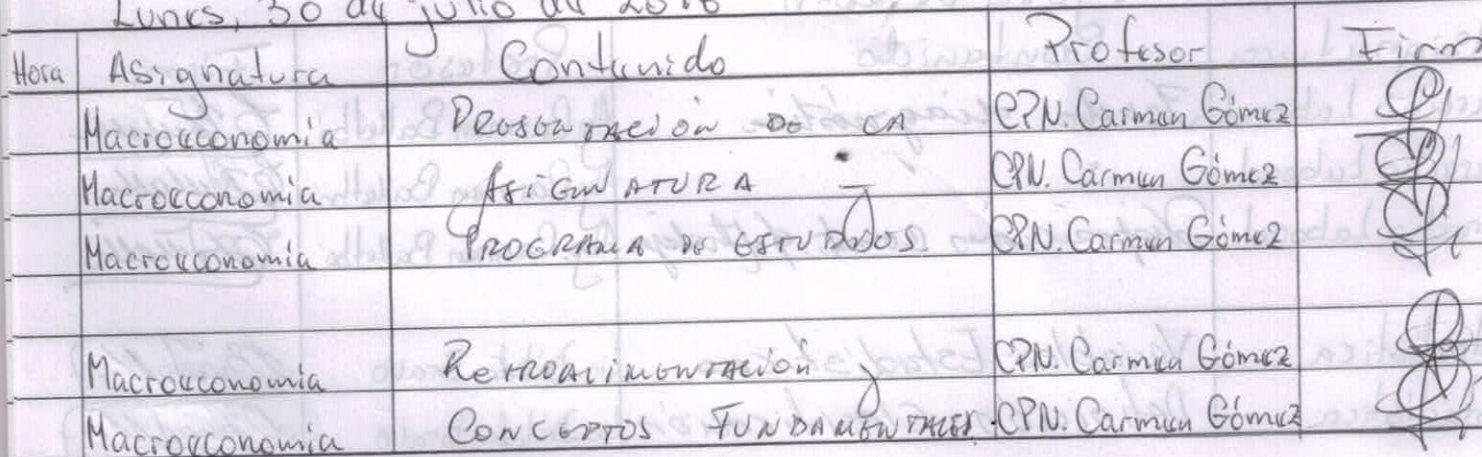 Lunes, 30 de julio de 2018
Hora Asignatura Contenido Profesor Firm
Macroeconomia PRESENTACIÓN DE LA CPN. Carmen Gómez
Macroeconomia ASIGNATURA y CPN. Carmen Gómez
Macroeconomia PROGRAMA DE ESTUDIOS. CPN. Carmen Gómez
Macroeconomia RETROALIMENTACIÓN y CPN. Carmen Gómez
Macroeconomia CONCEPTOS FUNDAMENTALES. CPN. Carmen Gómez